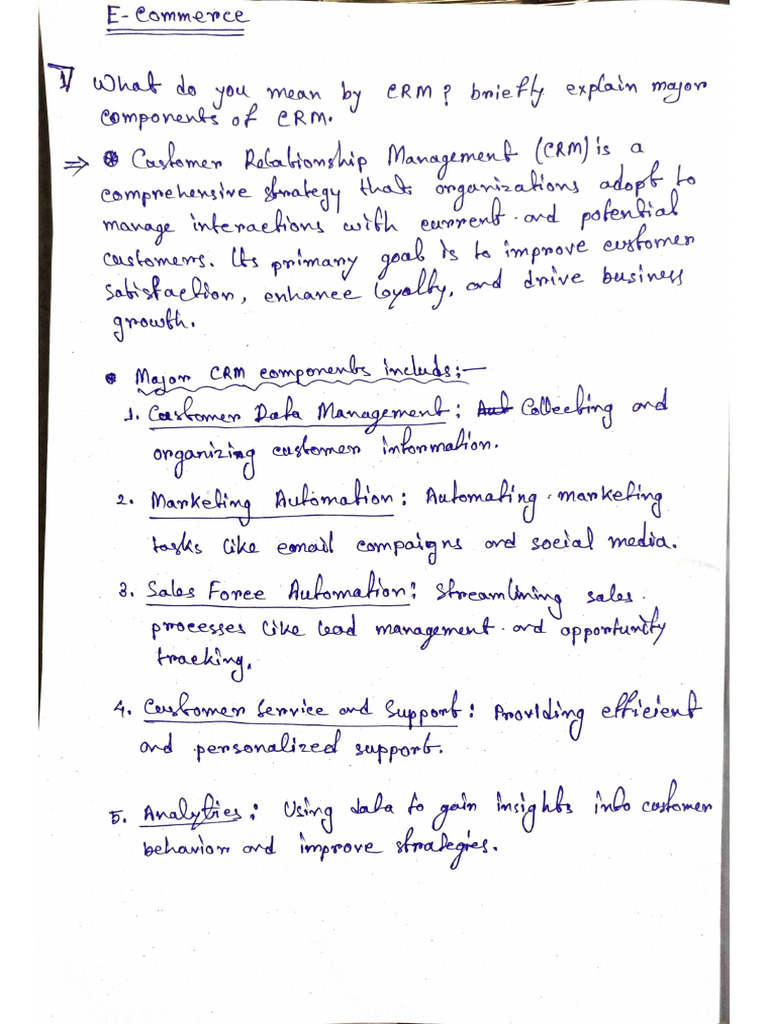 E-Commerce
1/ What do you mean by CRM? briefly explain major
components of CRM.
⇒ * Customer Relationship Management (CRM) is a
comprehensive strategy that organizations adopt to
manage interactions with current and potential
customers. Its primary goal is to improve customer
satisfaction, enhance loyalty, and drive business
growth.
* Major CRM components includs:-
1. Customer Data Management: Collecting and
organizing customer information.
2. Marketing Automation: Automating marketing
tasks like email campaigns and social media.
3. Sales Force Automation: Streamlining sales
processes like lead management and opportunity
tracking.
4. Customer Service and Support: Providing efficient
and personalized support.
5. Analytics: Using data to gain insights into customer
behavior and improve strategies.